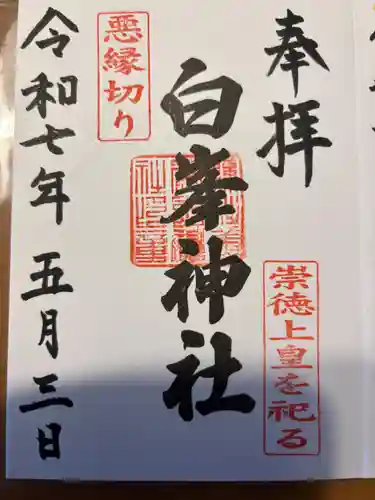 奉拝
崇徳上皇を祀る
白峯神社
悪縁切り
令和七年五月三日